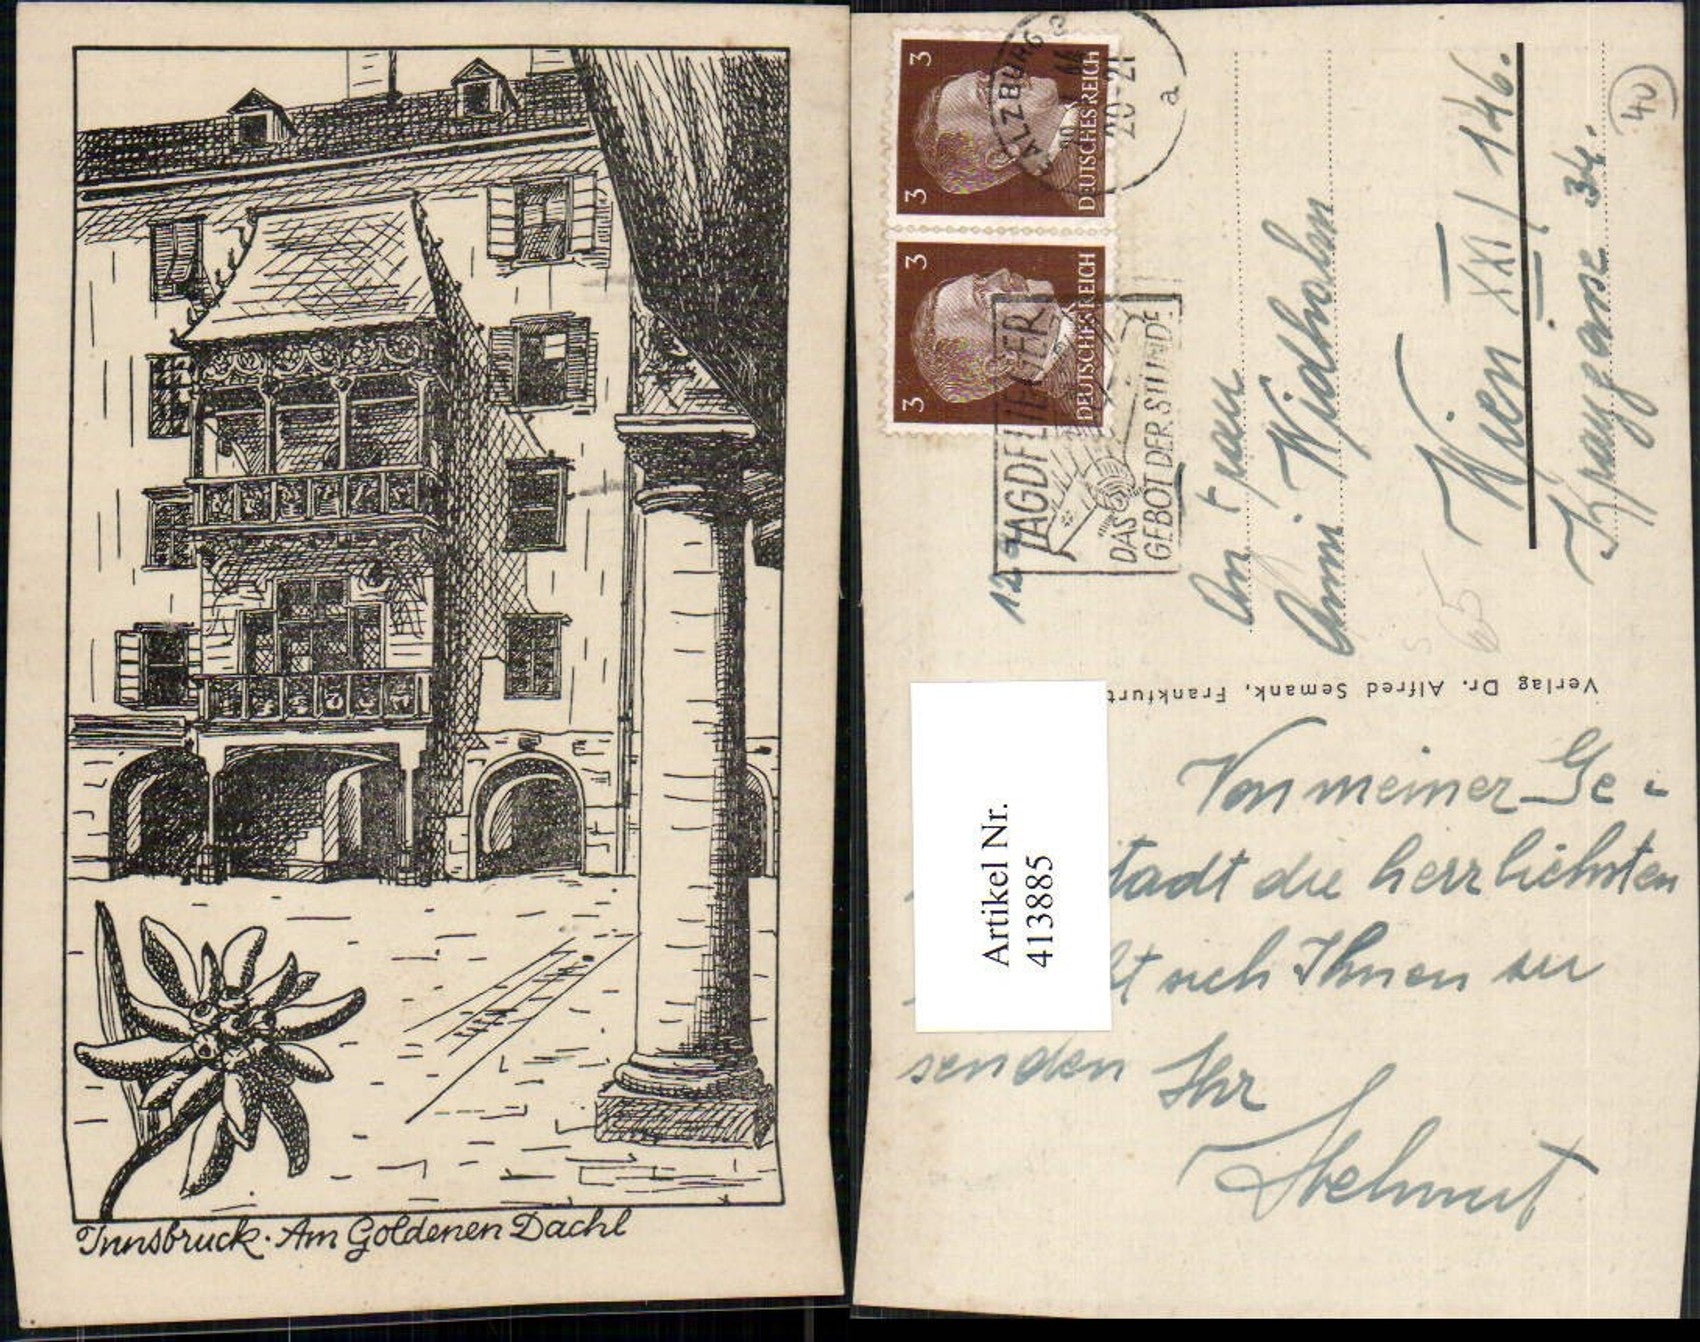 Innsbruck · Am Goldenen Dachl
3
3
DEUTSCHES REICH
3
3
DEUTSCHES REICH
SALZBURG 2
20-21
a
JAGDFLIEGER
DAS
GEBOT DER STUNDE
12
An Frau
Anni Widholm
Wien XXI / 146.
34.
40
65
Verlag Dr. Alfred Semank, Frankfurt
Artikel Nr.
413885
Von meiner Ge-
tadt die herrlichsten
t sich Ihnen zu
senden Ihr
Helmut